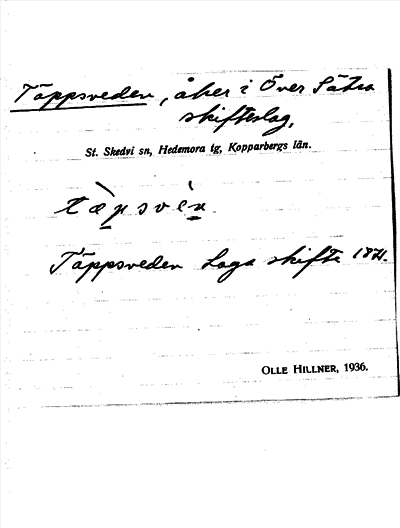 Täppsveden, åker i Över Sätra
skifteslag,
St. Skedvi sn, Hedemora tg, Kopparbergs län.
tæ̀p̲svèn̲
Täppsveden Laga skifte 1871.
OLLE HILLNER, 1936.